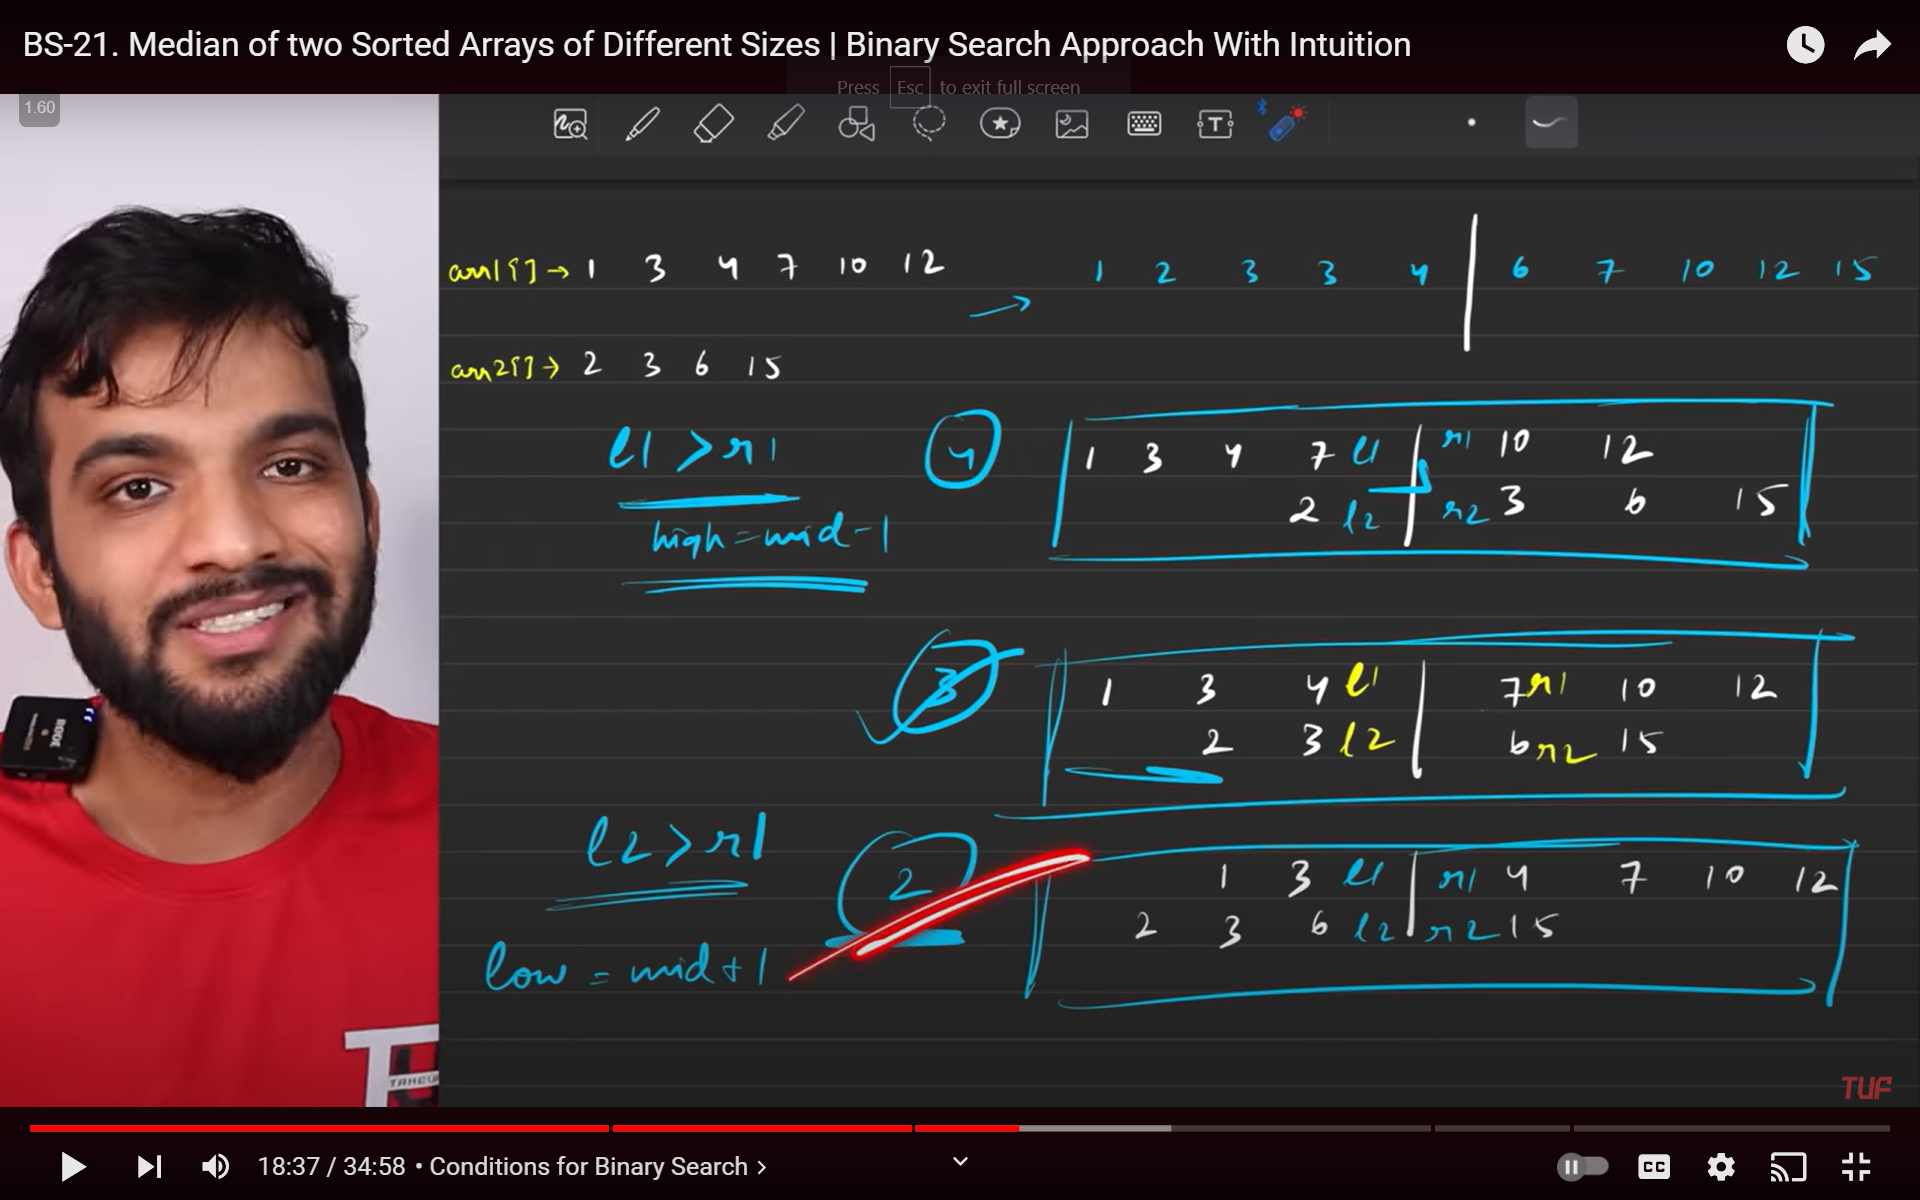 BS-21. Median of two Sorted Arrays of Different Sizes | Binary Search Approach With Intuition
Press Esc to exit full screen
1.60
arr1[] → 1 3 4 7 10 12
1 2 3 3 4 | 6 7 10 12 15
arr2[] → 2 3 6 15
l1 > r1
high = mid - 1
4
1 3 4 7 l1 | r1 10 12
2 l2 | r2 3 6 15
3
1 3 4 l1 | 7 r1 10 12
2 3 l2 | 6 r2 15
l2 > r1
low = mid + 1
2
1 3 l1 | r1 4 7 10 12
2 3 6 l2 | r2 15
RODE
TUF
18:37 / 34:58 • Conditions for Binary Search >
CC